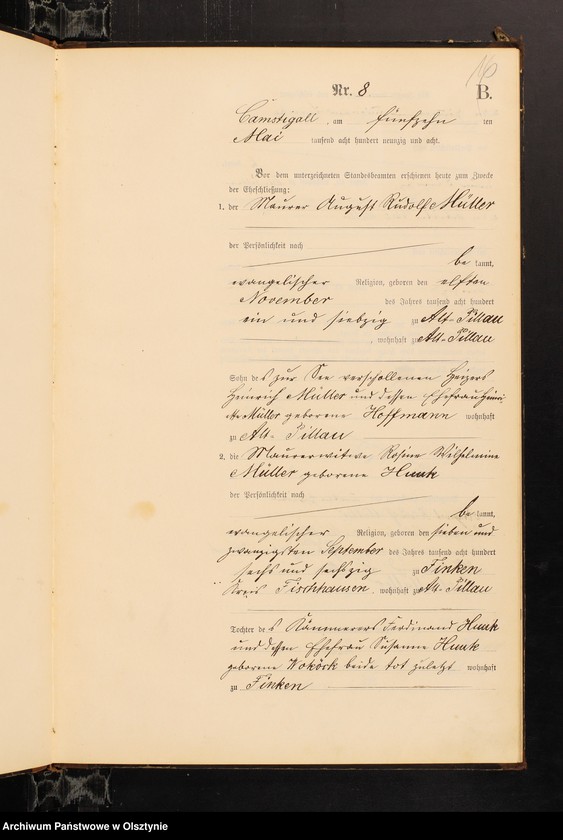 16
Nr. 8
B.
Camstigall, am fünfzehn ten
Mai tausend acht hundert neunzig und acht.
Vor dem unterzeichneten Standesbeamten erschienen heute zum Zwecke
der Eheschließung:
1. der Maurer August Rudolf Müller
der Persönlichkeit nach
be kannt,
evangelischer Religion, geboren den elften
November des Jahres tausend acht hundert
ein und siebzig zu Alt-Pillau
, wohnhaft zu Alt-Pillau
Sohn des zur See verschollenen Heizers
Heinrich Müller und dessen Ehefrau Henri-
ette Müller geborene Hoffmann wohnhaft
zu Alt-Pillau
2. die Maurerwitwe Rosine Wilhelmine
Müller geborene Hunk
der Persönlichkeit nach
be kannt,
evangelischer Religion, geboren den sieben und
zwanzigsten September des Jahres tausend acht hundert
sechs und sechszig zu Finken
Kreis Fischhausen, wohnhaft zu Alt-Pillau
Tochter des Kämmerers Ferdinand Hunk
und dessen Ehefrau Susanne Hunk
geborene beide tot zuletzt wohnhaft
zu Finken
Archiwum Państwowe w Olsztynie